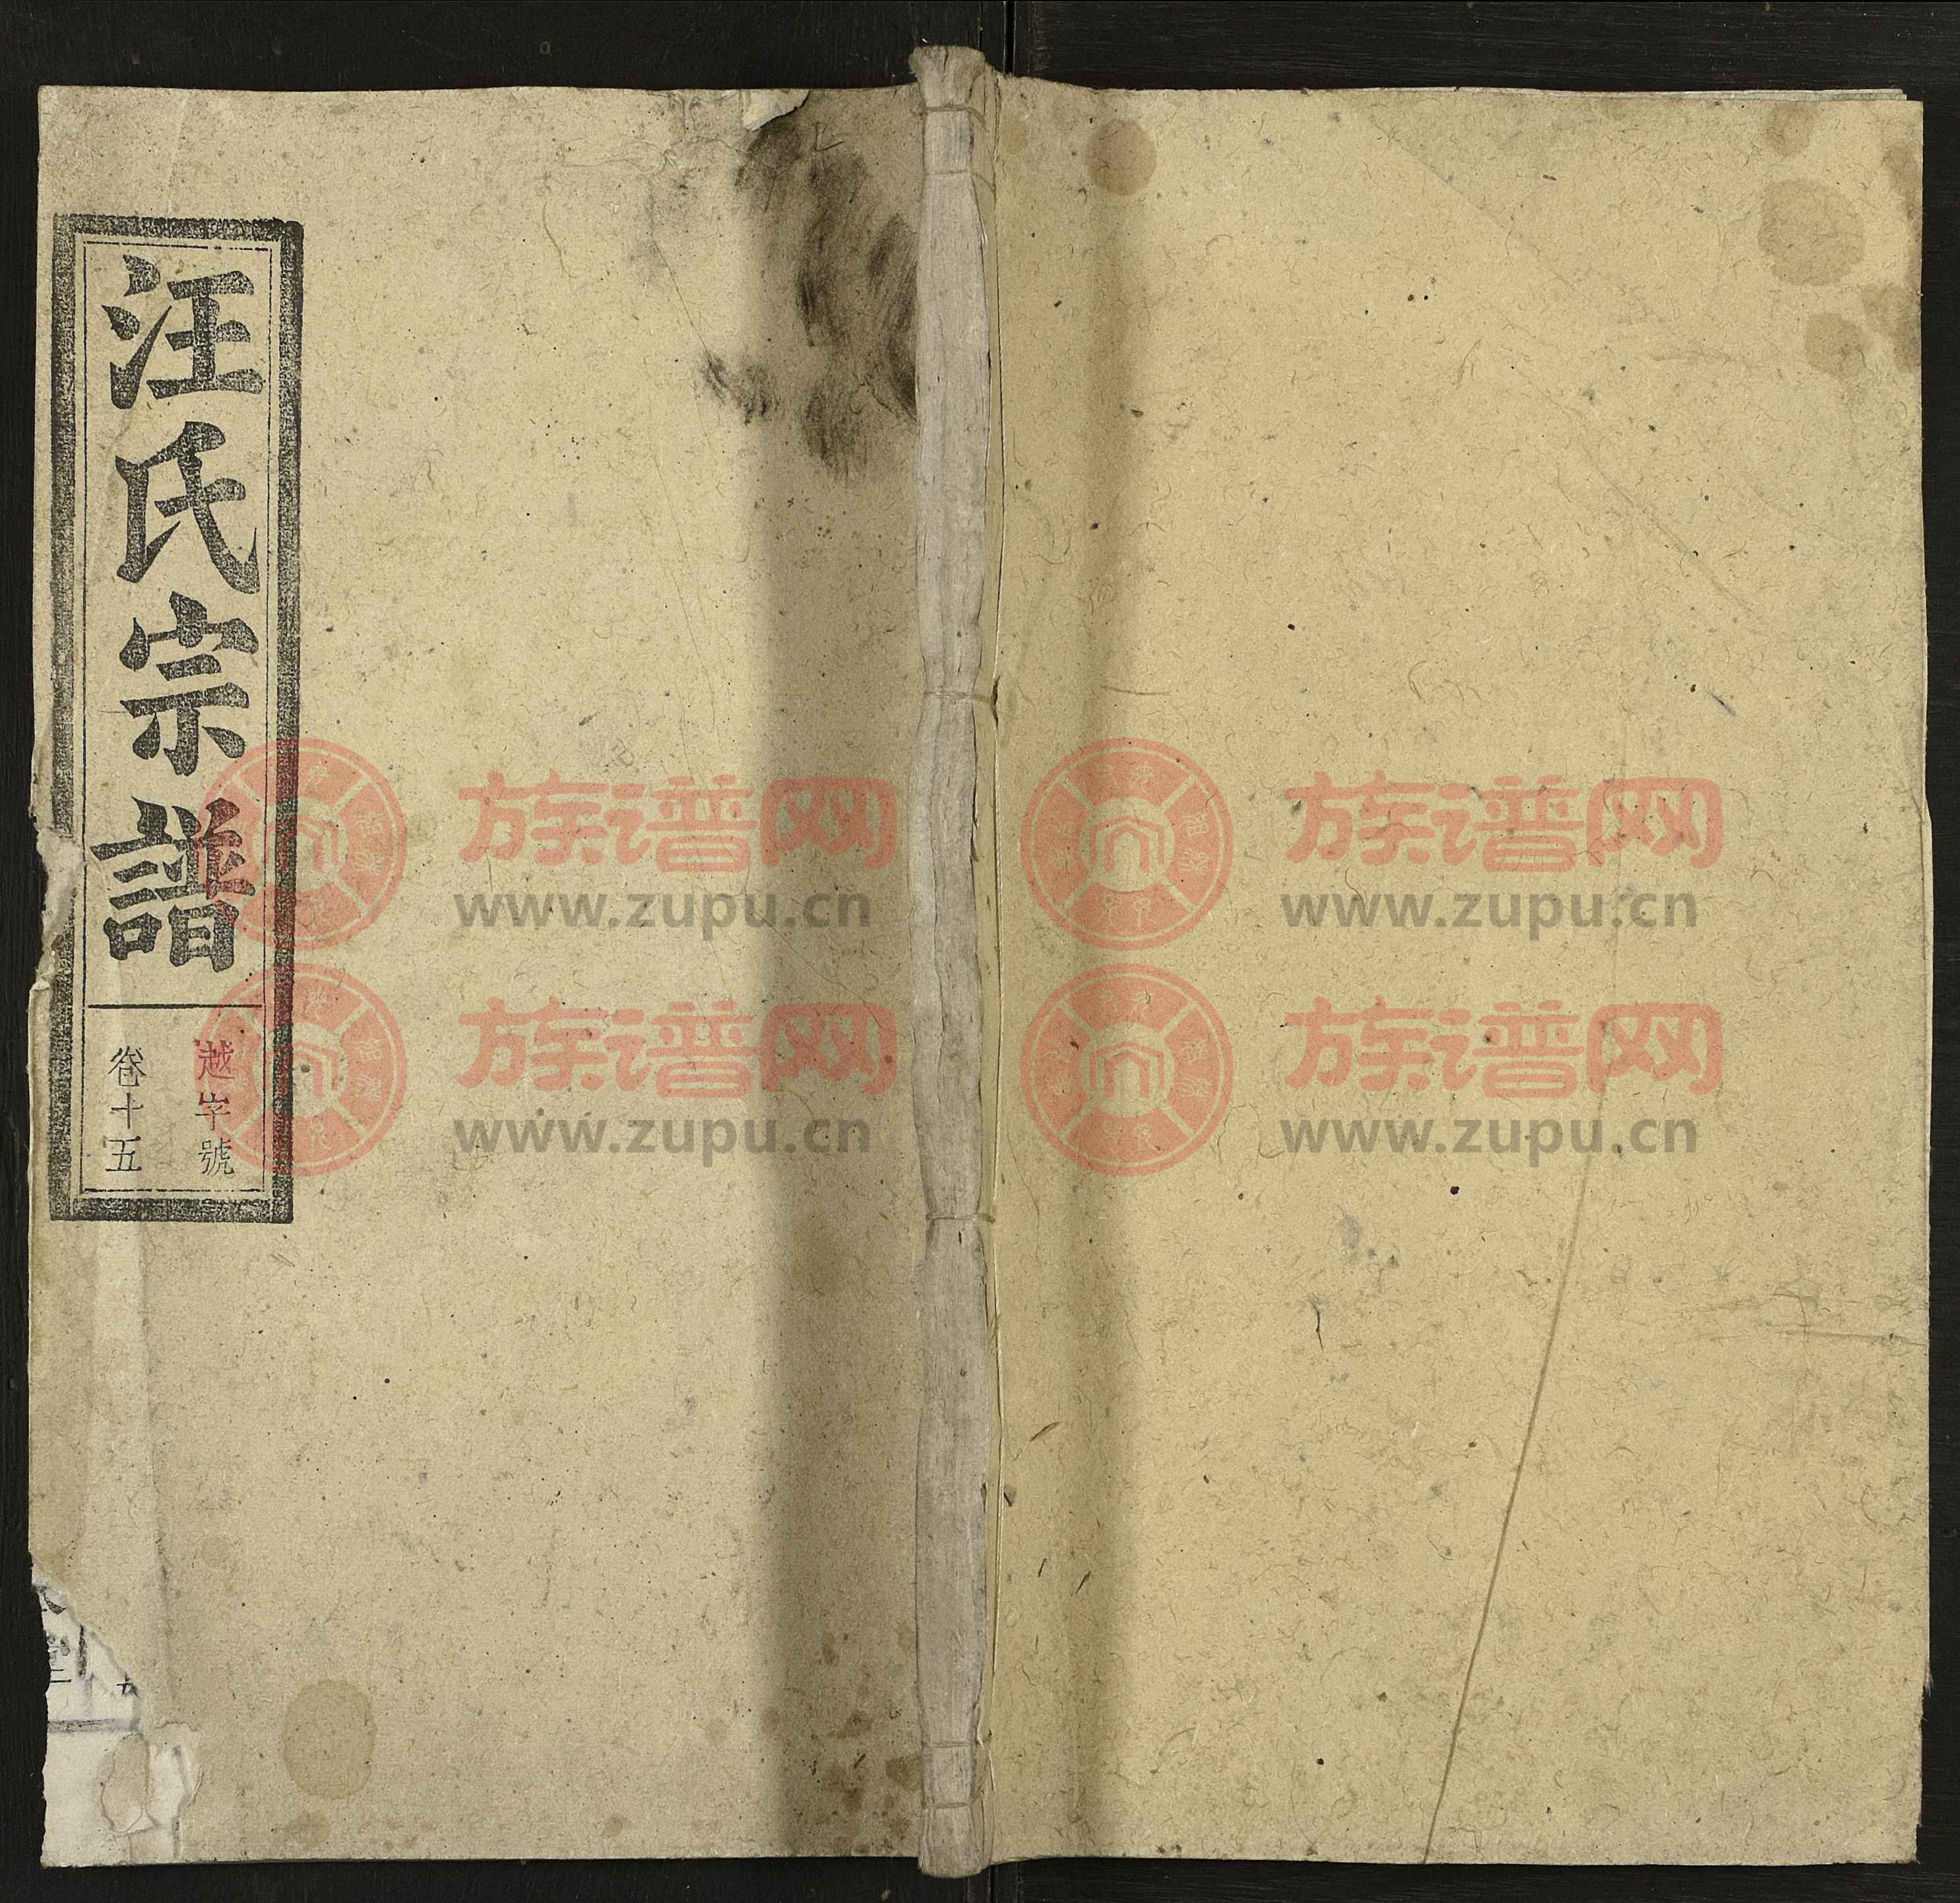 汪氏宗譜
越字號
卷十五
族谱网
www.zupu.cn
族谱网
www.zupu.cn
族谱网
www.zupu.cn
族谱网
www.zupu.cn